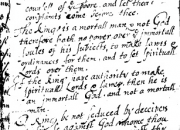 councell of ... and let these
complaints come before thee.
The King is a mortall man & not God
therefore hath no power over ye immortall
soules of his subiects, to make lawes &
ordinances for them, and to set spirituall
Lords over them.
If the King have authority to make
spirituall Lords & lawes, then he is
an immortall God and not a mortall
man.
O King, be not seduced by deceivers
to sinne against God whome thou